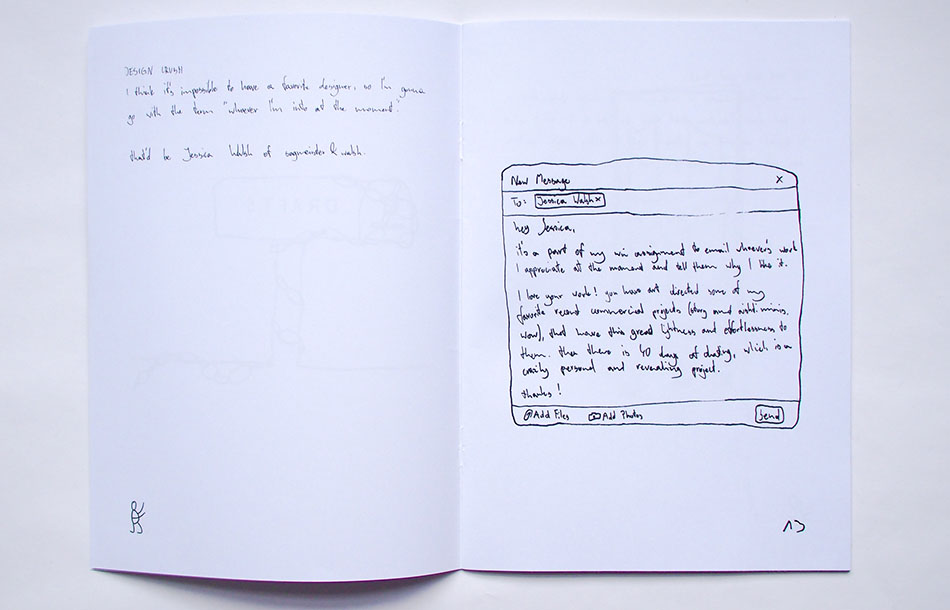 DESIGN CRUSH
I think it's impossible to have a favorite designer, so I'm gonna
go with the term "whoever I'm into at the moment".
that'd be Jessica Walsh of sagmeister & walsh.
New Message x
To: Jessica Walsh x
hey Jessica,
it's a part of my uni assignment to email whoever's work
I appreciate at the moment and tell them why I like it.
I love your work! you have art directed some of my
favorite recent commercial projects (story and aishti minis.
wow), that have this great lightness and effortlessness to
them. then there is 40 days of dating, which is a
crazily personal and revealing project.
thanks!
Add Files Add Photos Send
13